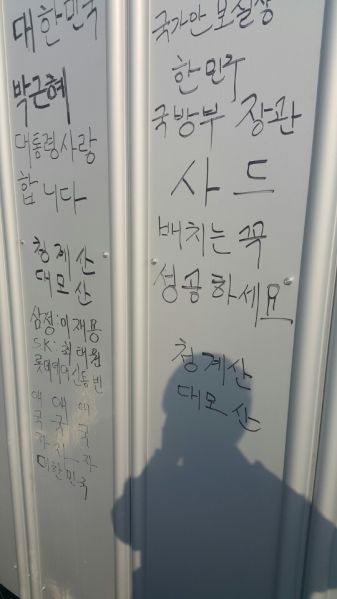 대한민국
박근혜
대통령사랑
합니다
청계산
대모산
삼성:이재용
SK:최태원
롯데에 신동빈
애애애
국국국
자자자
대한민국
국가안보실장
한민구
국방부 장관
사드
배치는 꼭
성공하세요
청계산
대모산